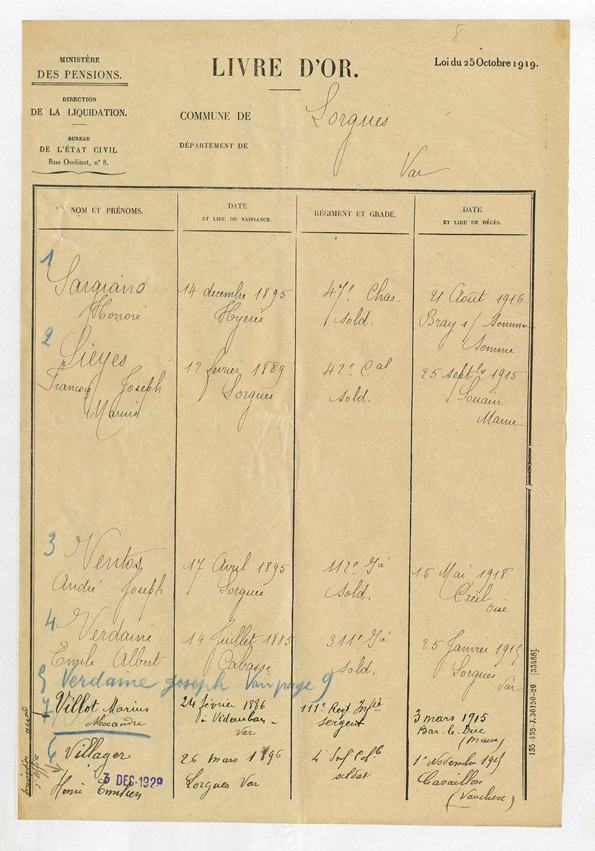 8
MINISTÈRE
DES PENSIONS.
DIRECTION
DE LA LIQUIDATION.
BUREAU
DE L'ÉTAT CIVIL
Rue Oudinot, n° 8.
LIVRE D'OR.
Loi du 25 Octobre 1919.
COMMUNE DE Lorgues
DÉPARTEMENT DE Var
NOM ET PRÉNOMS.
DATE
ET LIEU DE NAISSANCE.
RÉGIMENT ET GRADE.
DATE
ET LIEU DE DÉCÈS.
1
Sargiano 14 décembre 1895 47e Chas. 21 Août 1916
Honoré Hyères sold. Bray s/ Somme
Somme
2
Sieyes 12 février 1889 42e Cal 25 sept 1915
Joseph Lorgues Sold. Souain
Marne
3
Ventos 17 Avril 1895 112e 15 Mai 1918
André Joseph Lorgues Sold. Creil
Oise
4
Verdaine 14 Juillet 1885 311e 25 Janvier
Emile Albert Cabasse Sold. Lorgues
Var
5 Verdame joseph Voir page 9
7
Villot Marius 24 février 1886 111e Regt Infie 3 mars 1915
Alexandre à Vidauban Sergent Bar-le-Duc
Var (Meuse)
6
Villager 26 mars 1896 4 Inf Cole 1er Novembre
Henri 3 DEC 1929 Lorgues Var soldat Cavaillon
(Vaucluse)
135-435-J. 36190-29 [33488]